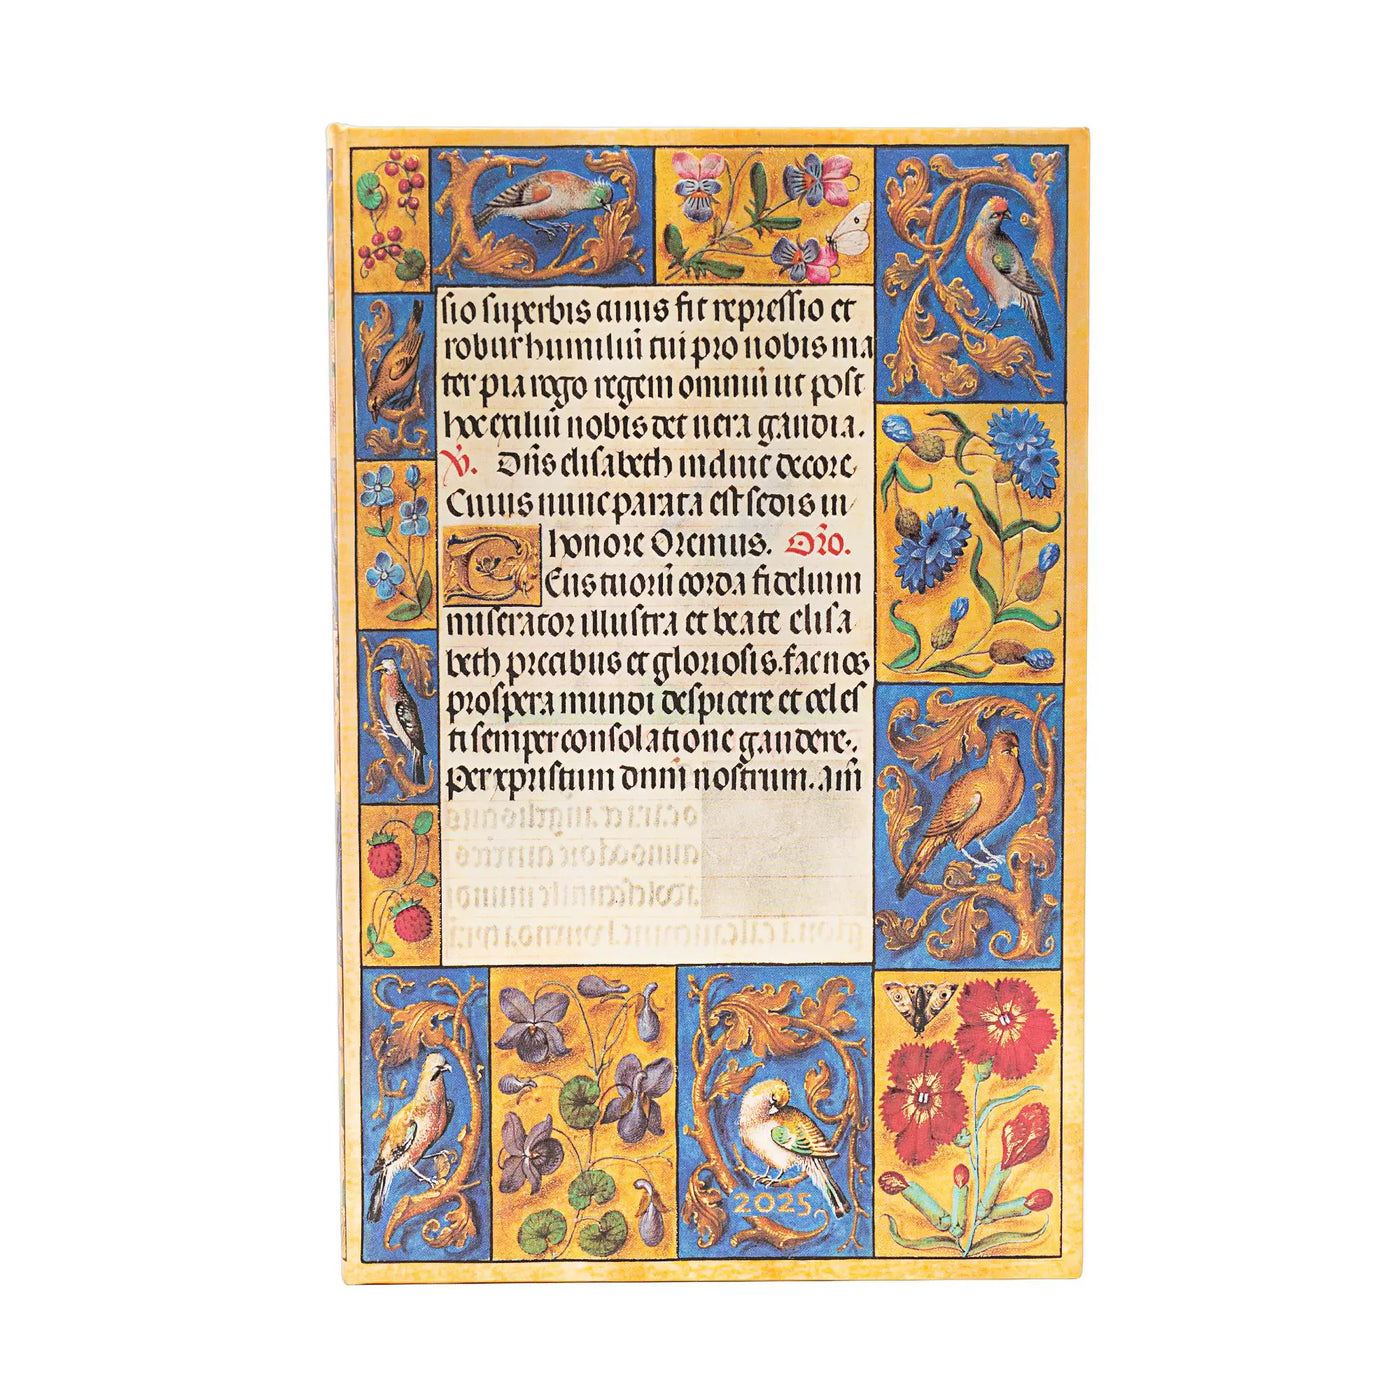 sio superbis cuius fit repressio et
robur humiliū tui pro nobis ma
ter pia rogo regem omniū ut post
hoc exiliū nobis det vera gaudia.
V. Dn̄s elisabeth induit decore
Cuius nunc parata est sedis in
honore Oremus. Or̄o.
Deus tuorū corda fidelium
miserator illustra et beate elisa
beth precibus et gloriosis. fac nos
prospera mundi despicere et celes
ti semper consolatione gaudere.
Per xpristum dn̄m nostrum. am̄
2025